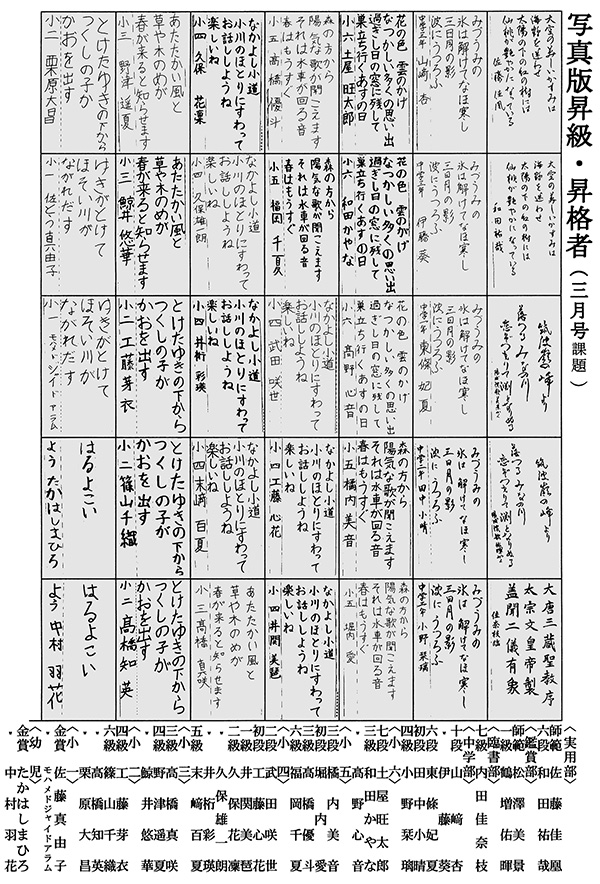 写真版昇級・昇格者(三月号課題)
大空の美しいかすみは
海野を迷わせ
太陽の下の紅の樹には
仙桃が艶やかになっている
佐藤佳凰
みづうみの
氷は解けてなほ寒し
三日月の影
波にうつろふ
中学三年 山﨑 杏
花の色 雲のかげ
なつかしい多くの思い出
過ぎし日の窓に残して
巣立ち行くあすの日
小六 土屋旺太郎
森の方から
陽気な歌が聞こえます
それは水車が回る音
春はもうすぐ
小五 高橋優斗
なかよし小道
小川のほとりにすわって
お話ししようね
楽しいね
小四 久保 花凜
あたたかい風と
草や木のめが
春が来ると知らせます
小三 野津遥夏
とけたゆきの下から
つくしの子が
かおを出す
小二 栗原大昌
大空の美しいかすみは
海野を迷わせ
太陽の下の紅の樹には
仙桃が艶やかになっている
和田祐哉
みづうみの
氷は解けてなほ寒し
三日月の影
波にうつろふ
伊藤 葵
花の色 雲のかげ
なつかしい多くの思い出
過ぎし日の窓に残して
巣立ち行くあすの日
小六 和田かやな
森の方から
陽気な歌が聞こえます
それは水車が回る音
春はもうすぐ
小五 福岡 千夏
なかよし小道
小川のほとりにすわって
お話ししようね
楽しいね
小四 久保雄一朗
あたたかい風と
草や木のめが
春が来ると知らせます
小三 鯨井悠華
ゆきがとけて
ほそい川が
ながれだす
小一 佐とう真由子
筑波嶺の峰より
落つるみな川
みづうみの
氷は解けてなほ寒し
三日月の影
波にうつろふ
東條 妃夏
花の色 雲のかげ
なつかしい多くの思い出
過ぎし日の窓に残して
巣立ち行くあすの日
小六 高野 心音
なかよし小道
小川のほとりにすわって
お話ししようね
楽しいね
小四 武田 咲世
なかよし小道
小川のほとりにすわって
お話ししようね
楽しいね
小四 井桁 彩瑛
とけたゆきの下から
つくしの子が
かおを出す
小二 工藤芽衣
ゆきがとけて
ほそい川が
ながれだす
筑波嶺の峰より
落つるみな川
みづうみの
氷は解けてなほ寒し
三日月の影
波にうつろふ
田中小晴
森の方から
陽気な歌が聞こえます
それは水車が回る音
春はもうすぐ
小五 橋内美音
なかよし小道
小川のほとりにすわって
お話ししようね
楽しいね
小四 工藤 心花
なかよし小道
小川のほとりにすわって
お話ししようね
楽しいね
小四 末﨑 百夏
とけたゆきの下から
つくしの子が
かおを出す
小二 篠山千織
はるよこい
よう たかはしまひろ
大唐三蔵聖教序
太宗文皇帝製
蓋聞二儀有象
佳奈枝臨
みづうみの
氷は解けてなほ寒し
三日月の影
波にうつろふ
小野 栞璃
森の方から
陽気な歌が聞こえます
それは水車が回る音
春はもうすぐ
小五 堀内 愛
なかよし小道
小川のほとりにすわって
お話ししようね
楽しいね
小四 井関美琶
あたたかい風と
草や木のめが
春が来ると知らせます
小三 高橋真咲
とけたゆきの下から
つくしの子が
かおを出す
小二 高橋知英
はるよこい
よう 中村 羽花
〈実用部〉
師範 佐藤佳凰
六段 和田祐哉
〈鑑賞部〉
師範 松澤美景
一級 鶴増佑暉
〈臨書部〉
七級 内田佳奈枝
〈中学部〉
十段 山﨑杏
・ 伊藤葵
六段 東條妃夏
初段 田中小晴
四級 小野栞璃
〈小六〉
七段 土屋旺太郎
三段 和田かやな
・ 高野心音
〈小五〉
三段 橋内美音
初段 堀内愛
六級 高橋優斗
三級 福岡千夏
〈小四〉
二段 武田咲世
初段 工藤心花
二級 井関美琶
一級 久保花凜
・ 久保雄一朗
・ 井桁彩瑛
五級 末﨑百夏
〈小三〉
三級 高橋真咲
四級 野津遥夏
・ 鯨井悠華
〈小二〉
四級 工藤芽衣
・ 篠山千織
六級 高橋知英
・ 栗原大昌
〈小一〉
金賞 佐藤真由子
・ モハメドジャイドアラム
〈幼児〉
金賞 たかはしまひろ
・ 中村羽花